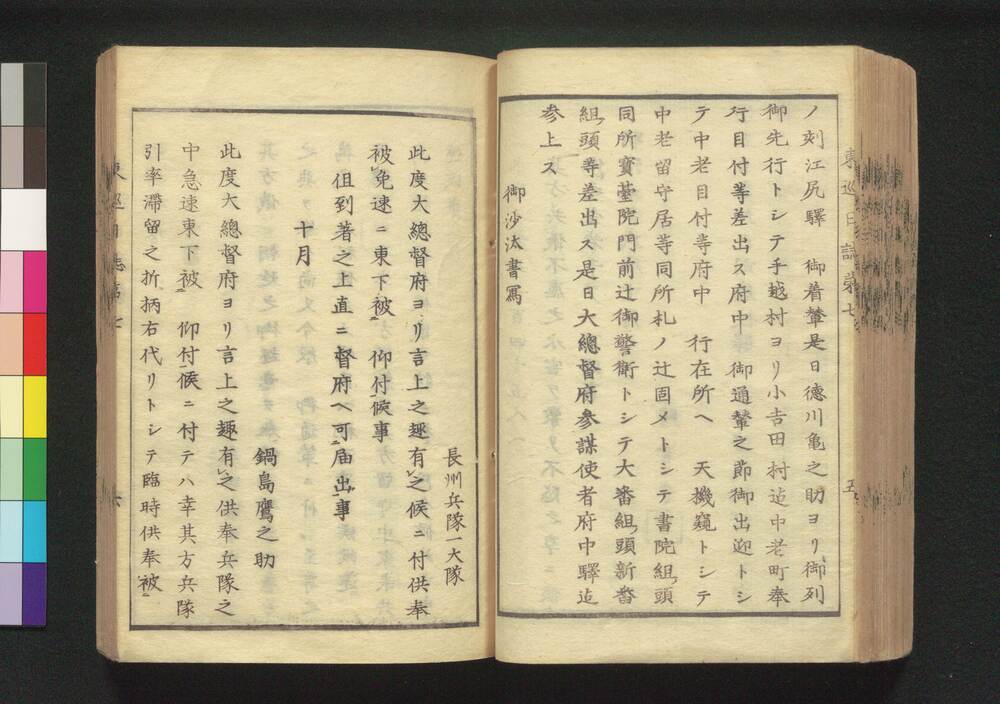 ノ刻江尻驛　御着輦是日德川亀之助ヨリ御列
御先行トシテ手越村ヨリ小吉田村迠中老町奉
行目付等差出ス府中　御通輦之節御出迎トシ
テ中老目付等府中　行在所ヘ　天機窺トシテ
中老留守居等同所札ノ辻固メトシテ書院組頭
同所寳䑓院門前辻御警衛トシテ大番組頭新番
組頭等差出ス是日大總督府参謀使者府中驛迠
参上ス
御沙汰書寫
長州兵隊一大隊
此度大總督府ヨリ言上之趣有之候ニ付供奉
被免速ニ東下被　仰付候事
但到着之上直ニ督府ヘ可届出事
十月
鍋島鷹之助
此度大總督府ヨリ言上之趣有之供奉兵隊之
中急速東下被　仰付候ニ付テハ幸其方兵隊
引率滯留之折柄右代リトシテ臨時供奉被
東巡日誌第七
五